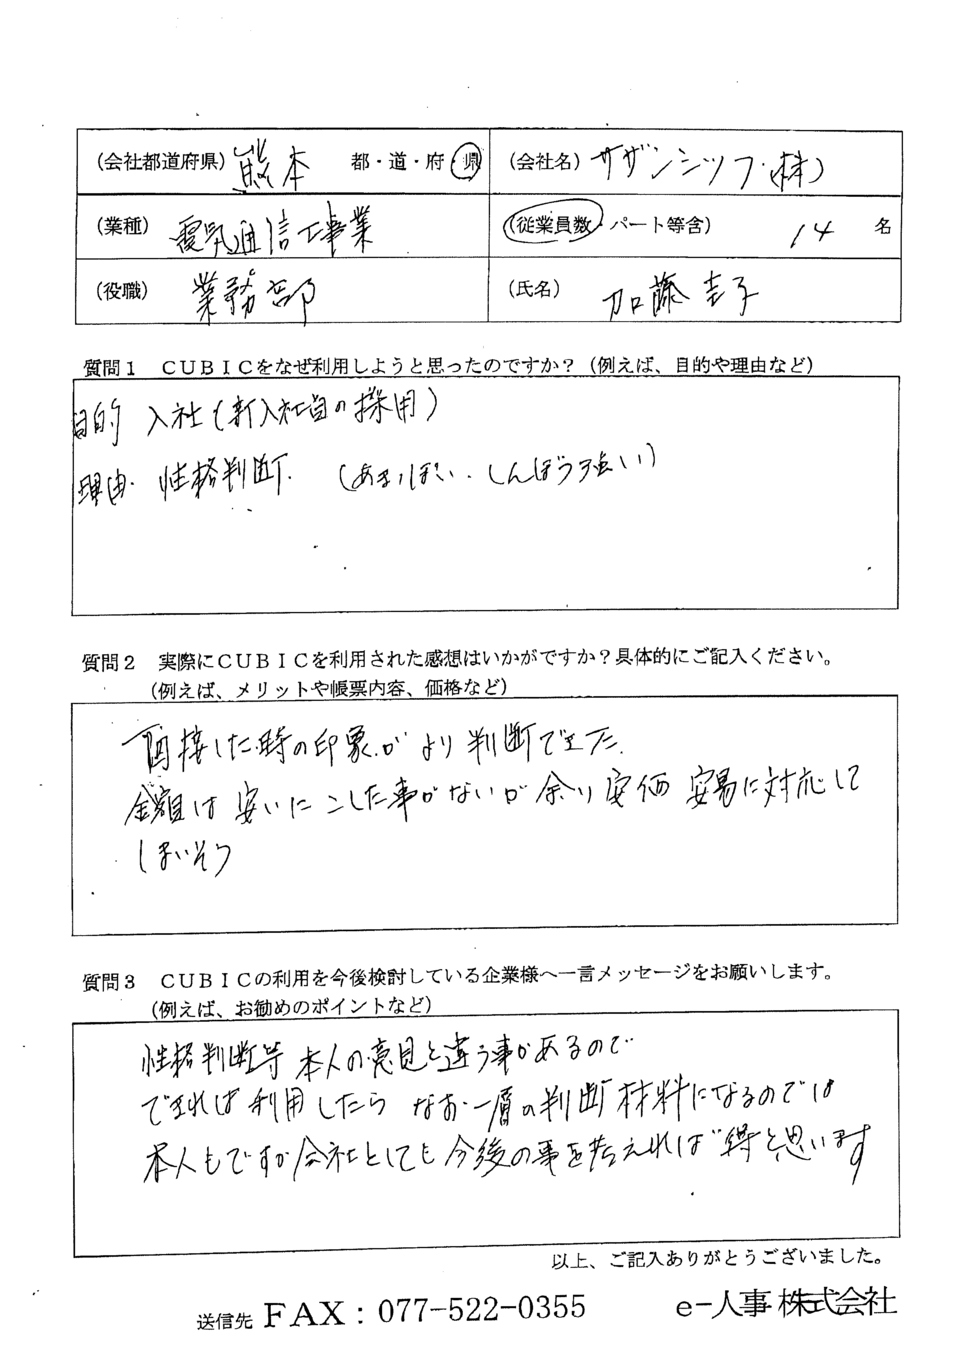 (会社都道府県) 熊本 都・道・府・県 (会社名) サザンシップ(株)
(業種) 電気通信工事業 (従業員数・パート等含) 14 名
(役職) 業務部 (氏名) 加藤圭子
質問1 CUBICをなぜ利用しようと思ったのですか?(例えば、目的や理由など)
目的 入社(新入社員の採用)
理由 性格判断 (あきっぽい・しんぼう強い)
質問2 実際にCUBICを利用された感想はいかがですか?具体的にご記入ください。
(例えば、メリットや帳票内容、価格など)
面接した時の印象がより判断できた
金額は安いにこした事がないが余り安価 安易に対応して
しまいそう
質問3 CUBICの利用を今後検討している企業様へ一言メッセージをお願いします。
(例えば、お勧めのポイントなど)
性格判断等 本人の意見と違う事があるので
できれば利用したら なお一層の判断材料になるのでは
本人もですが会社としても今後の事を考えれば得と思います
以上、ご記入ありがとうございました。
送信先 FAX:077-522-0355 e-人事株式会社